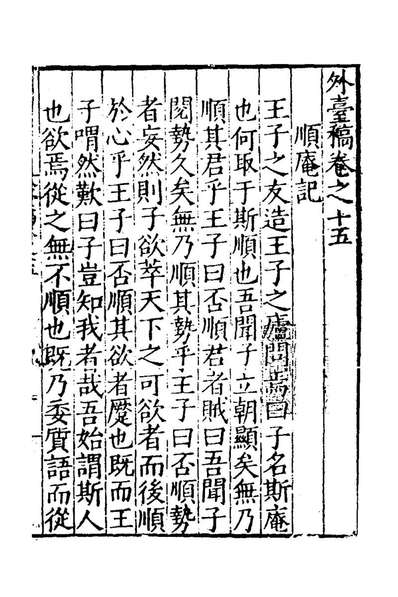 外臺稿卷之十五
順庵記
王子之友造王子之廬問焉曰子名斯庵
也何取于斯順也吾聞子立朝顯矣無乃
順其君乎王子曰否順君者賊曰吾聞子
閱勢久矣無乃順其勢乎王子曰否順勢
者妄然則子欲萃天下之可欲者而後順
於心乎王子曰否順其欲者蹷也既而王
子喟然歎曰子豈知我者哉吾始謂斯人
也欲焉從之無不順也既乃委質語而從